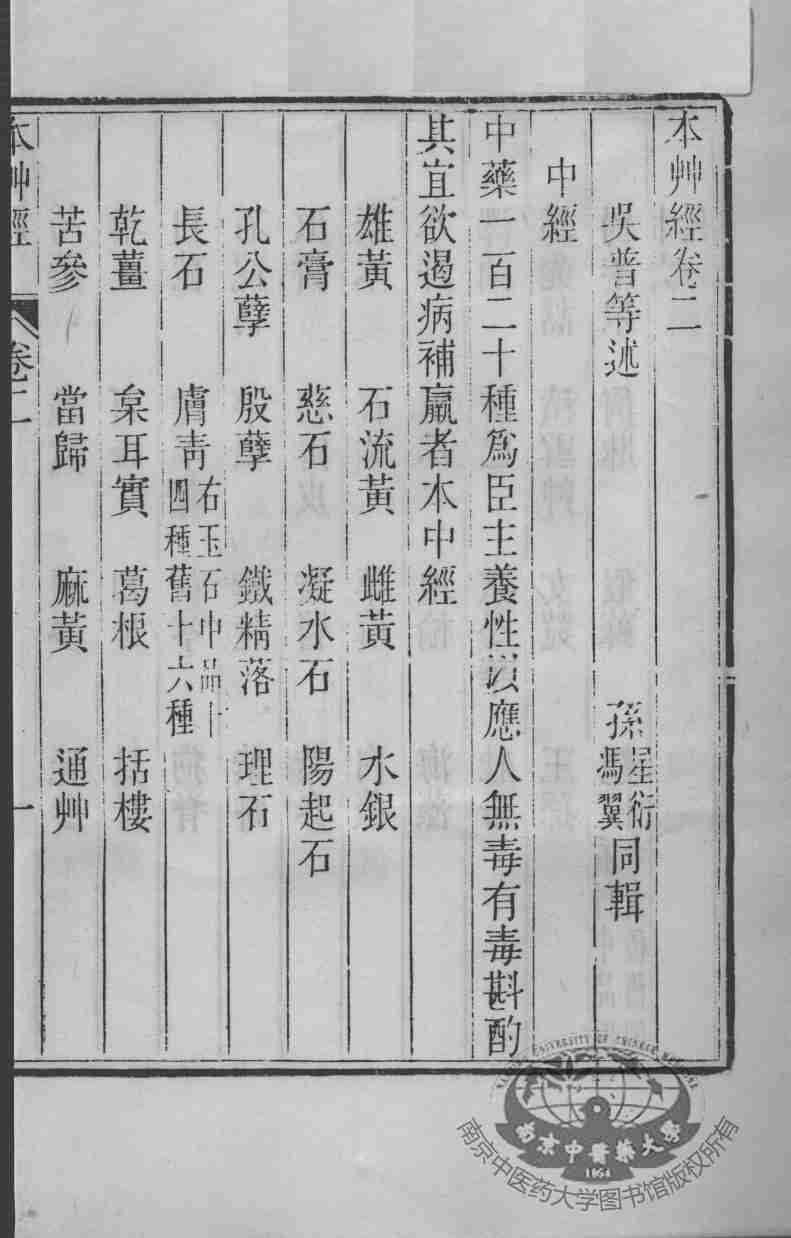 本艸經卷二
吳普等述 孫星衍馮翼同輯
中經
中藥一百二十種爲臣主養性㕥應人無毒有毒斟酌
其宜欲遏病補羸者本中經
雄黃 石流黃 雌黃 水銀
石膏 慈石 凝水石 陽起石
孔公孽 殷孽 鐵精落 理石
長石 膚青 右玉石中品十四種舊十六種
乾薑 枲耳實 葛根 括樓
苦參 當歸 麻黃 通艸
本艸經 卷二 一
NANJING UNIVERSITY OF CHINESE MEDICINE
南京中醫藥大學
1954
南京中医药大学图书馆版权所有